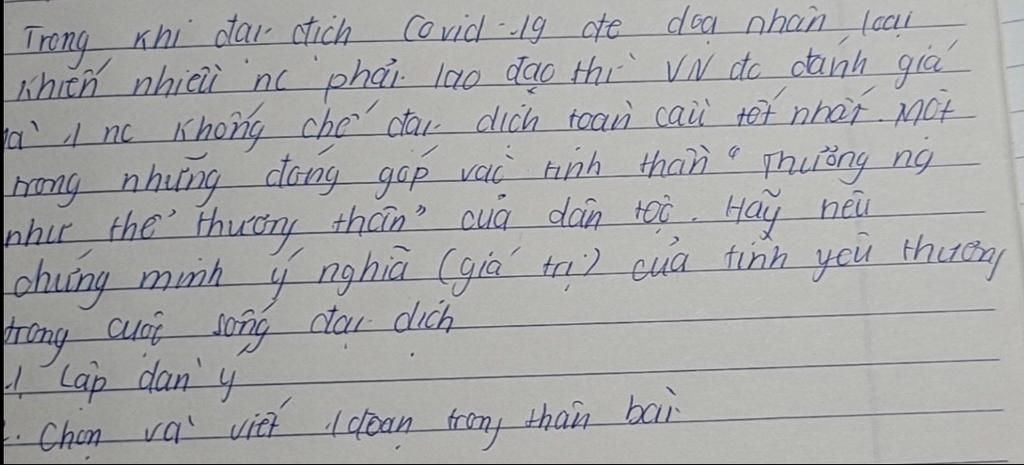 Trong khi đại dịch Covid-19 đe dọa nhân loại
khiến nhiều nc phải lao đao thì VN đc đánh giá
là 1 nc khống chế đại dịch toàn cầu tốt nhất. Một
trong những đóng góp vào tinh thần "Thương ng
như thể thương thân" của dân tộc. Hãy nêu
chứng minh ý nghĩa (giá trị) của tình yêu thương
trong cuộc sống đại dịch
1, Lập dàn ý
2. Chọn và viết 1 đoạn trong thân bài